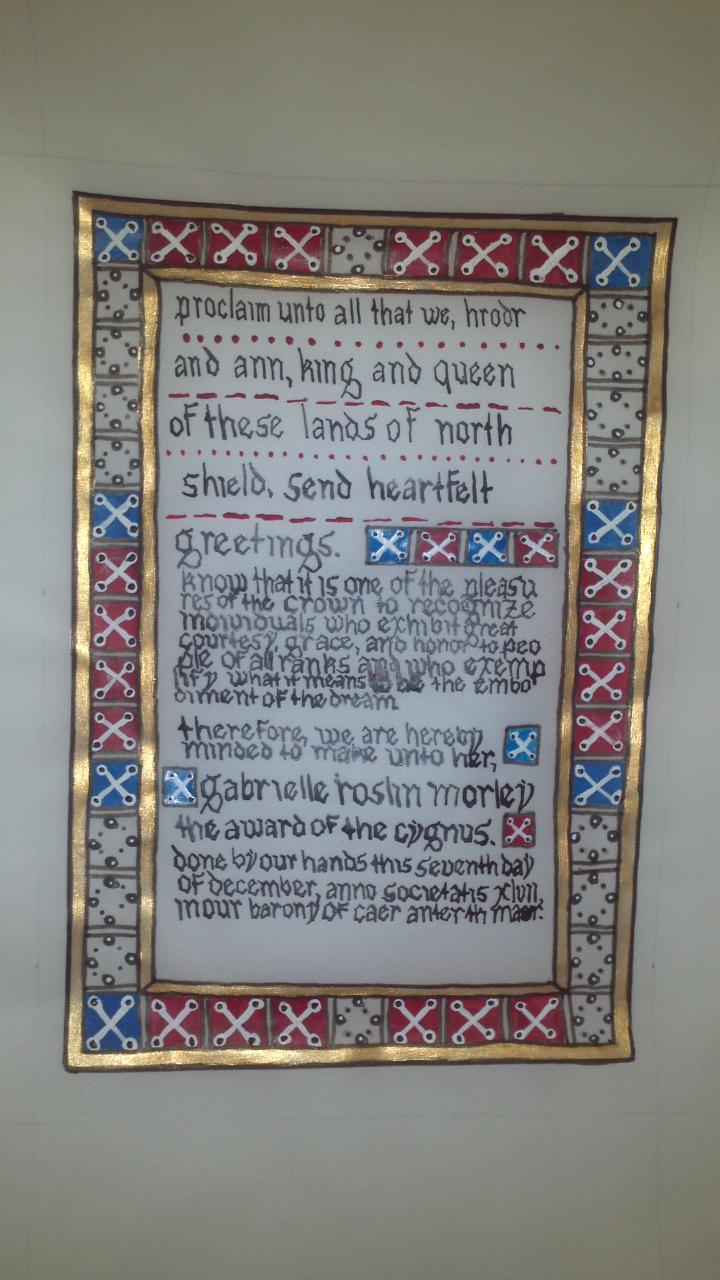 proclaim unto all that we, hrodr
and ann, king and queen
of these lands of north
shield, send heartfelt
greetings.
know that it is one of the pleasu
res of the crown to recognize
individuals who exhibit great
courtesy, grace, and honor to peo
ple of all ranks and who exemp
lify what it means to be the embo
diment of the dream
therefore, we are hereby
minded to make unto her,
gabrielle roslin morley
the award of the cygnus.
done by our hands this seventh day
of december, anno societatis xlvii,
in our barony of caer anterth mawr.